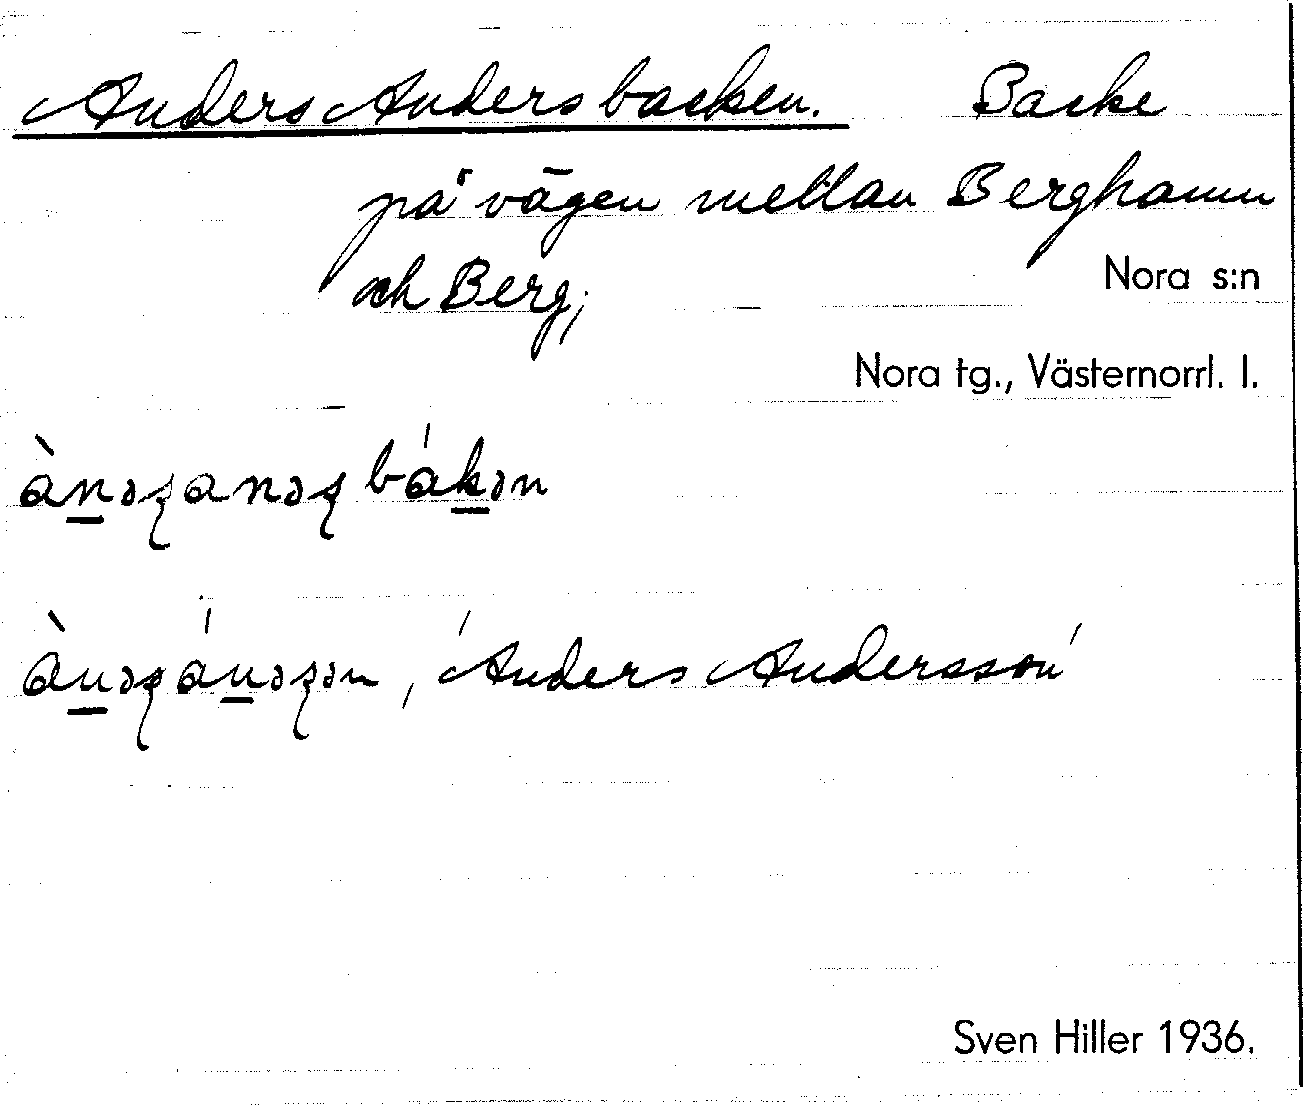 Anders Andersbacken. Backe
på vägen mellan Berghamn
och Berg,
Nora s:n
Nora tg., Västernorrl. l.
ànəʂanəʂbákən
ànəʂánəʂən, 'Anders Andersson'
Sven Hiller 1936.